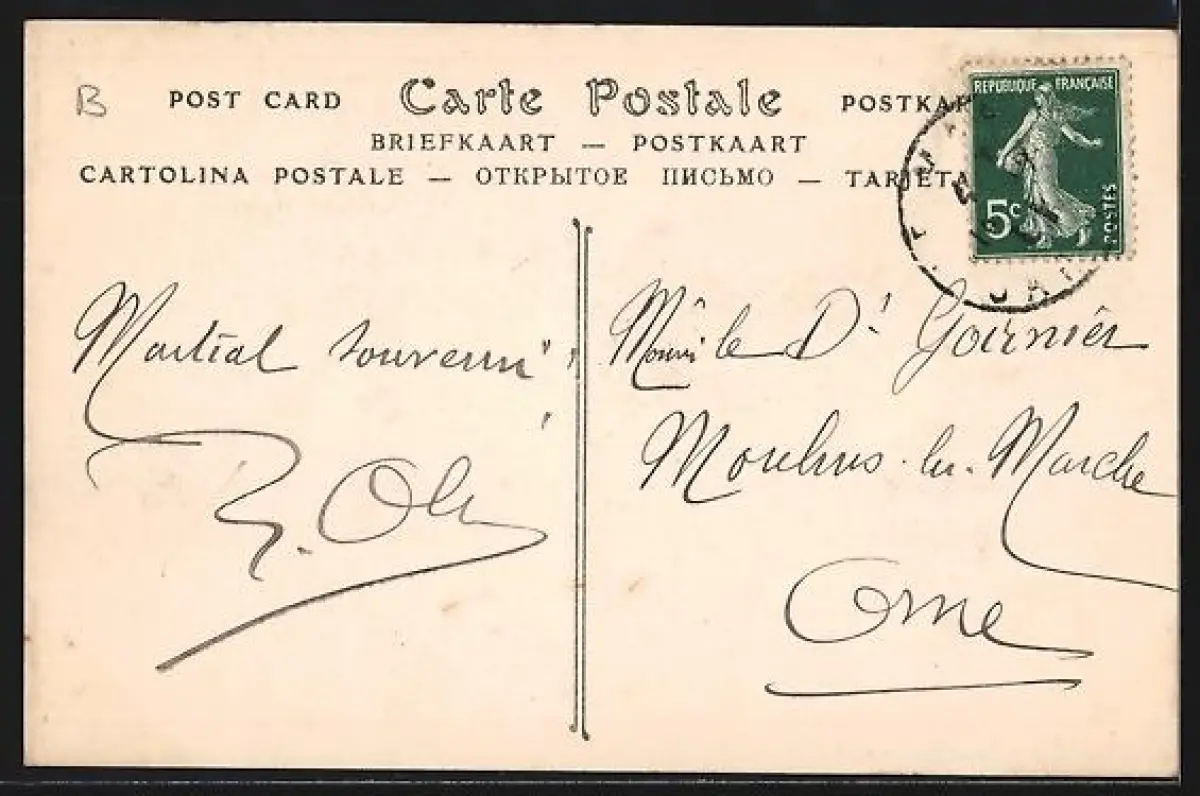 B
POST CARD Carte Postale POSTKAR
BRIEFKAART — POSTKAART
CARTOLINA POSTALE — ОТКРЫТОЕ ПИСЬМО — TARJETA
REPUBLIQUE FRANÇAISE
5c
POSTES
Martial souvenir
le Dr Garnier
Moulins-la-Marche
Orne